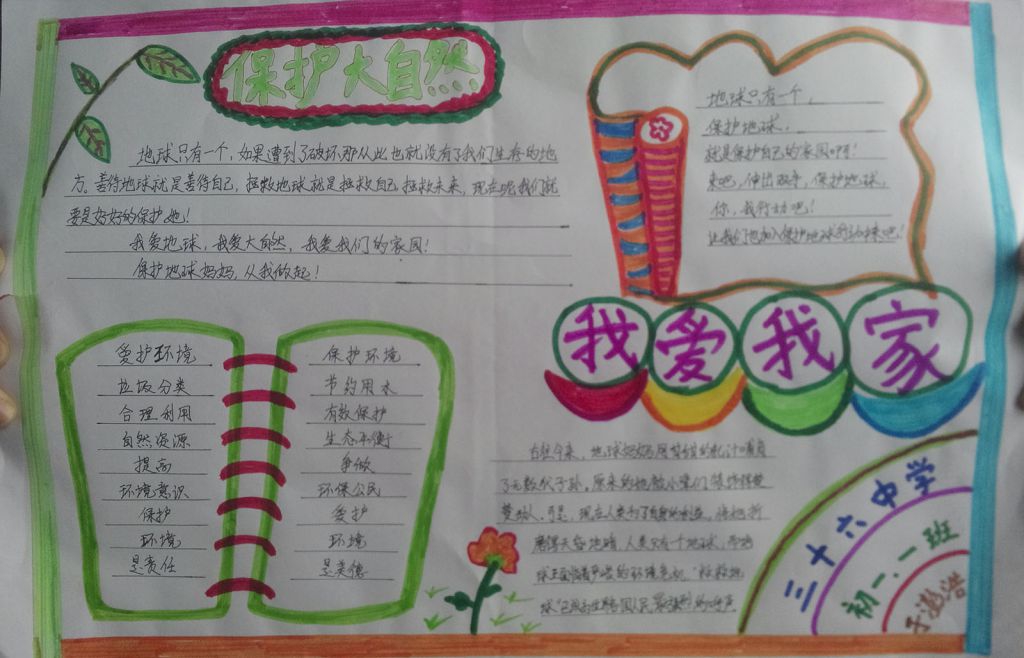 保护大自然
地球只有一个,如果遭到了破坏那从此也就没有了我们生存的地
方。善待地球就是善待自己,拯救地球就是拯救自己拯救未来,现在呢我们就
要是好好的保护她!
我爱地球,我爱大自然,我爱我们的家园!
保护地球妈妈,从我做起!
地球只有一个,
保护地球,
就是保护自己的家园啊!
来吧,伸出双手,保护地球,
你,我行动吧!
让我们加入保护地球行动来吧!
我爱我家
爱护环境
垃圾分类
合理利用
自然资源
提高
环境意识
保护
环境
是责任
保护环境
节约用水
有效保护
生态平衡
争做
环保公民
爱护
环境
是美德
古往今来,地球妈妈用甘甜的乳汁哺育
了无数代子孙。原来的她被小辈们装饰得
人。可是,现在人类为了自身的利益,将她折
磨得天容地暗。人类只有一个地球,而地
球正面临着严峻的环境危机。"救救地
球"已成为世界各国人民最强烈的呼声
三十六中学
初一.一班
澎浩